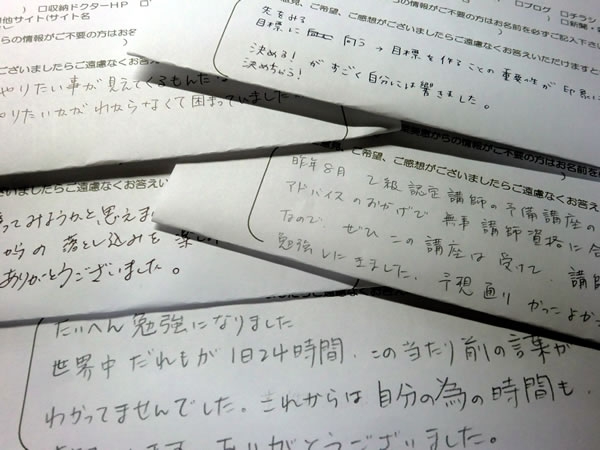 )　□収納ドクターHP　□
□ブログ　□チラシ
他サイト(サイト名
□新聞・
らの情報がご不要の方はお名前を
らの情報がご不要の方はお名前を必ずご記入下さい
、ご希望、ご感想がございましたらご遠慮なくお答えいただけますと
先をみる
目標に 向う → 目標を作ることの重要性が 印象に
決める!
決めちゃう! がすごく自分には響きました。
ございましたらご遠慮なくお答え
やりたい事が見えてくるもんだな
やりたいかがわからなくて困っていました
からの情報がご不要の方はお名前を
見、ご希望、ご感想がございましたらご遠慮なくお答え
昨年8月 2級認定講師の予備講座の
アドバイスのおかげで 無事講師資格に合
なので、ぜひ この講座は受けて、講師
勉強しにきました。予想通り かっこよか
がございましたらご遠慮なくお答えい
ってみようかと、思えま
からの 落とし込みを 楽し
ありがとうございました。
たいへん 勉強になりました
世界中 だれもが 1日24時間、この当たり前の言葉が
わかってませんでした。これからは 自分の為の時間も
ありがとうございました。